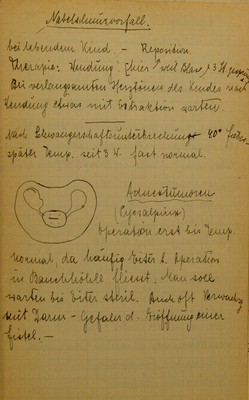 Nabelschnurvorfall.
bei lebendem Kind. - Reposition.
Therapie: Wendung! (hier weil Blase
Bei verlangsamten Herztönen des Kindes nach
Wendung etwas mit Extraktion warten.
Nach Schwangerschaftsunterbrechung 40° Fieber
später Temp. seit 3 W. fast normal.
Adnextumoren
(Pyosalpinx)
Operation erst bis Temp.
normal, da häufig Eiter b. Operation
in Bauchhöhle fliesst. Man soll
warten bis Eiter steril. Auch oft Verwachsg
mit Darm - Gefahr d. Eröffnung einer
Fistel. -